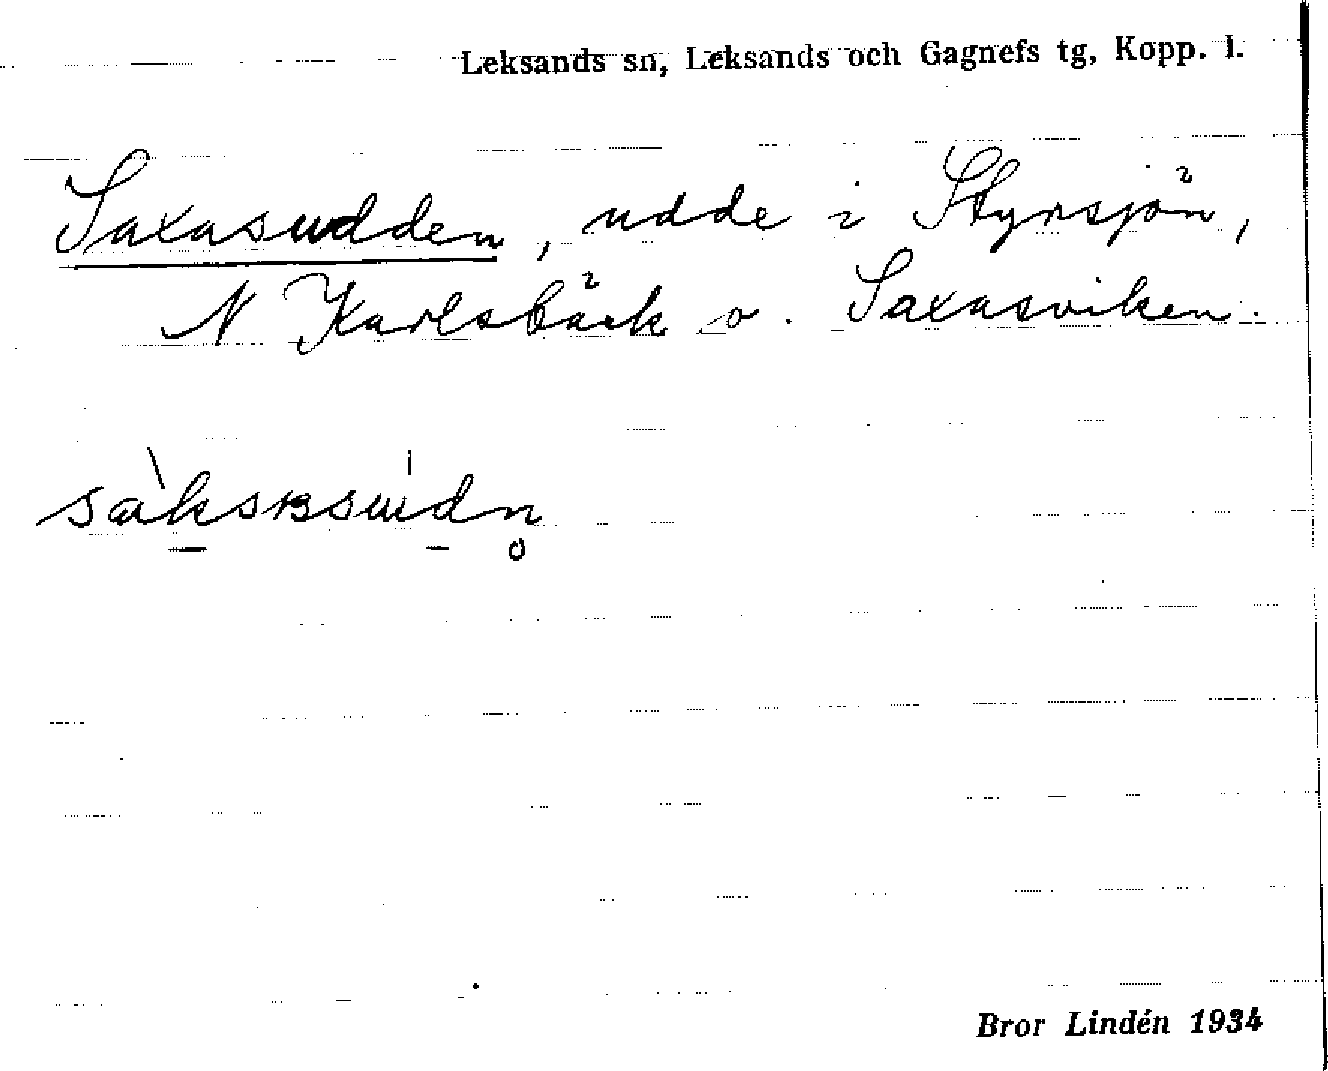 Leksands sn, Leksands och Gagnefs tg, Kopp. l.
Saxasudden, udde i Styrsjön,
N Karlsbäck o. Saxasviken.
Bror Lindén 1934